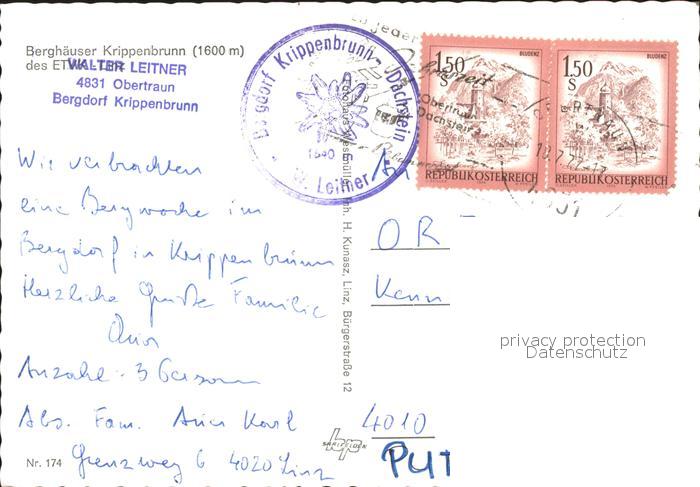 Berghäuser Krippenbrunn (1600 m)
des
WALTER LEITNER
4831 Obertraun
Bergdorf Krippenbrunn
Bergdorf Krippenbrunn-/Dachstein
W. Leitner
jeder
Obertraun
Dachstein
1.50 S
BLUDENZ
REPUBLIK ÖSTERREICH
1.50 S
BLUDENZ
REPUBLIK ÖSTERREICH
Wir verbrachten
eine Bergwoche im
Bergdorf in Krippenbrunn
Herzliche Grüße Familie
Anzahl: 3 Personen
Abs. Fam. Karl
Grenzweg 6 4020 Linz
Nr. 174
H. Kunasz, Linz, Bürgerstraße 12
An
OR
4010
PUT
privacy protection
Datenschutz